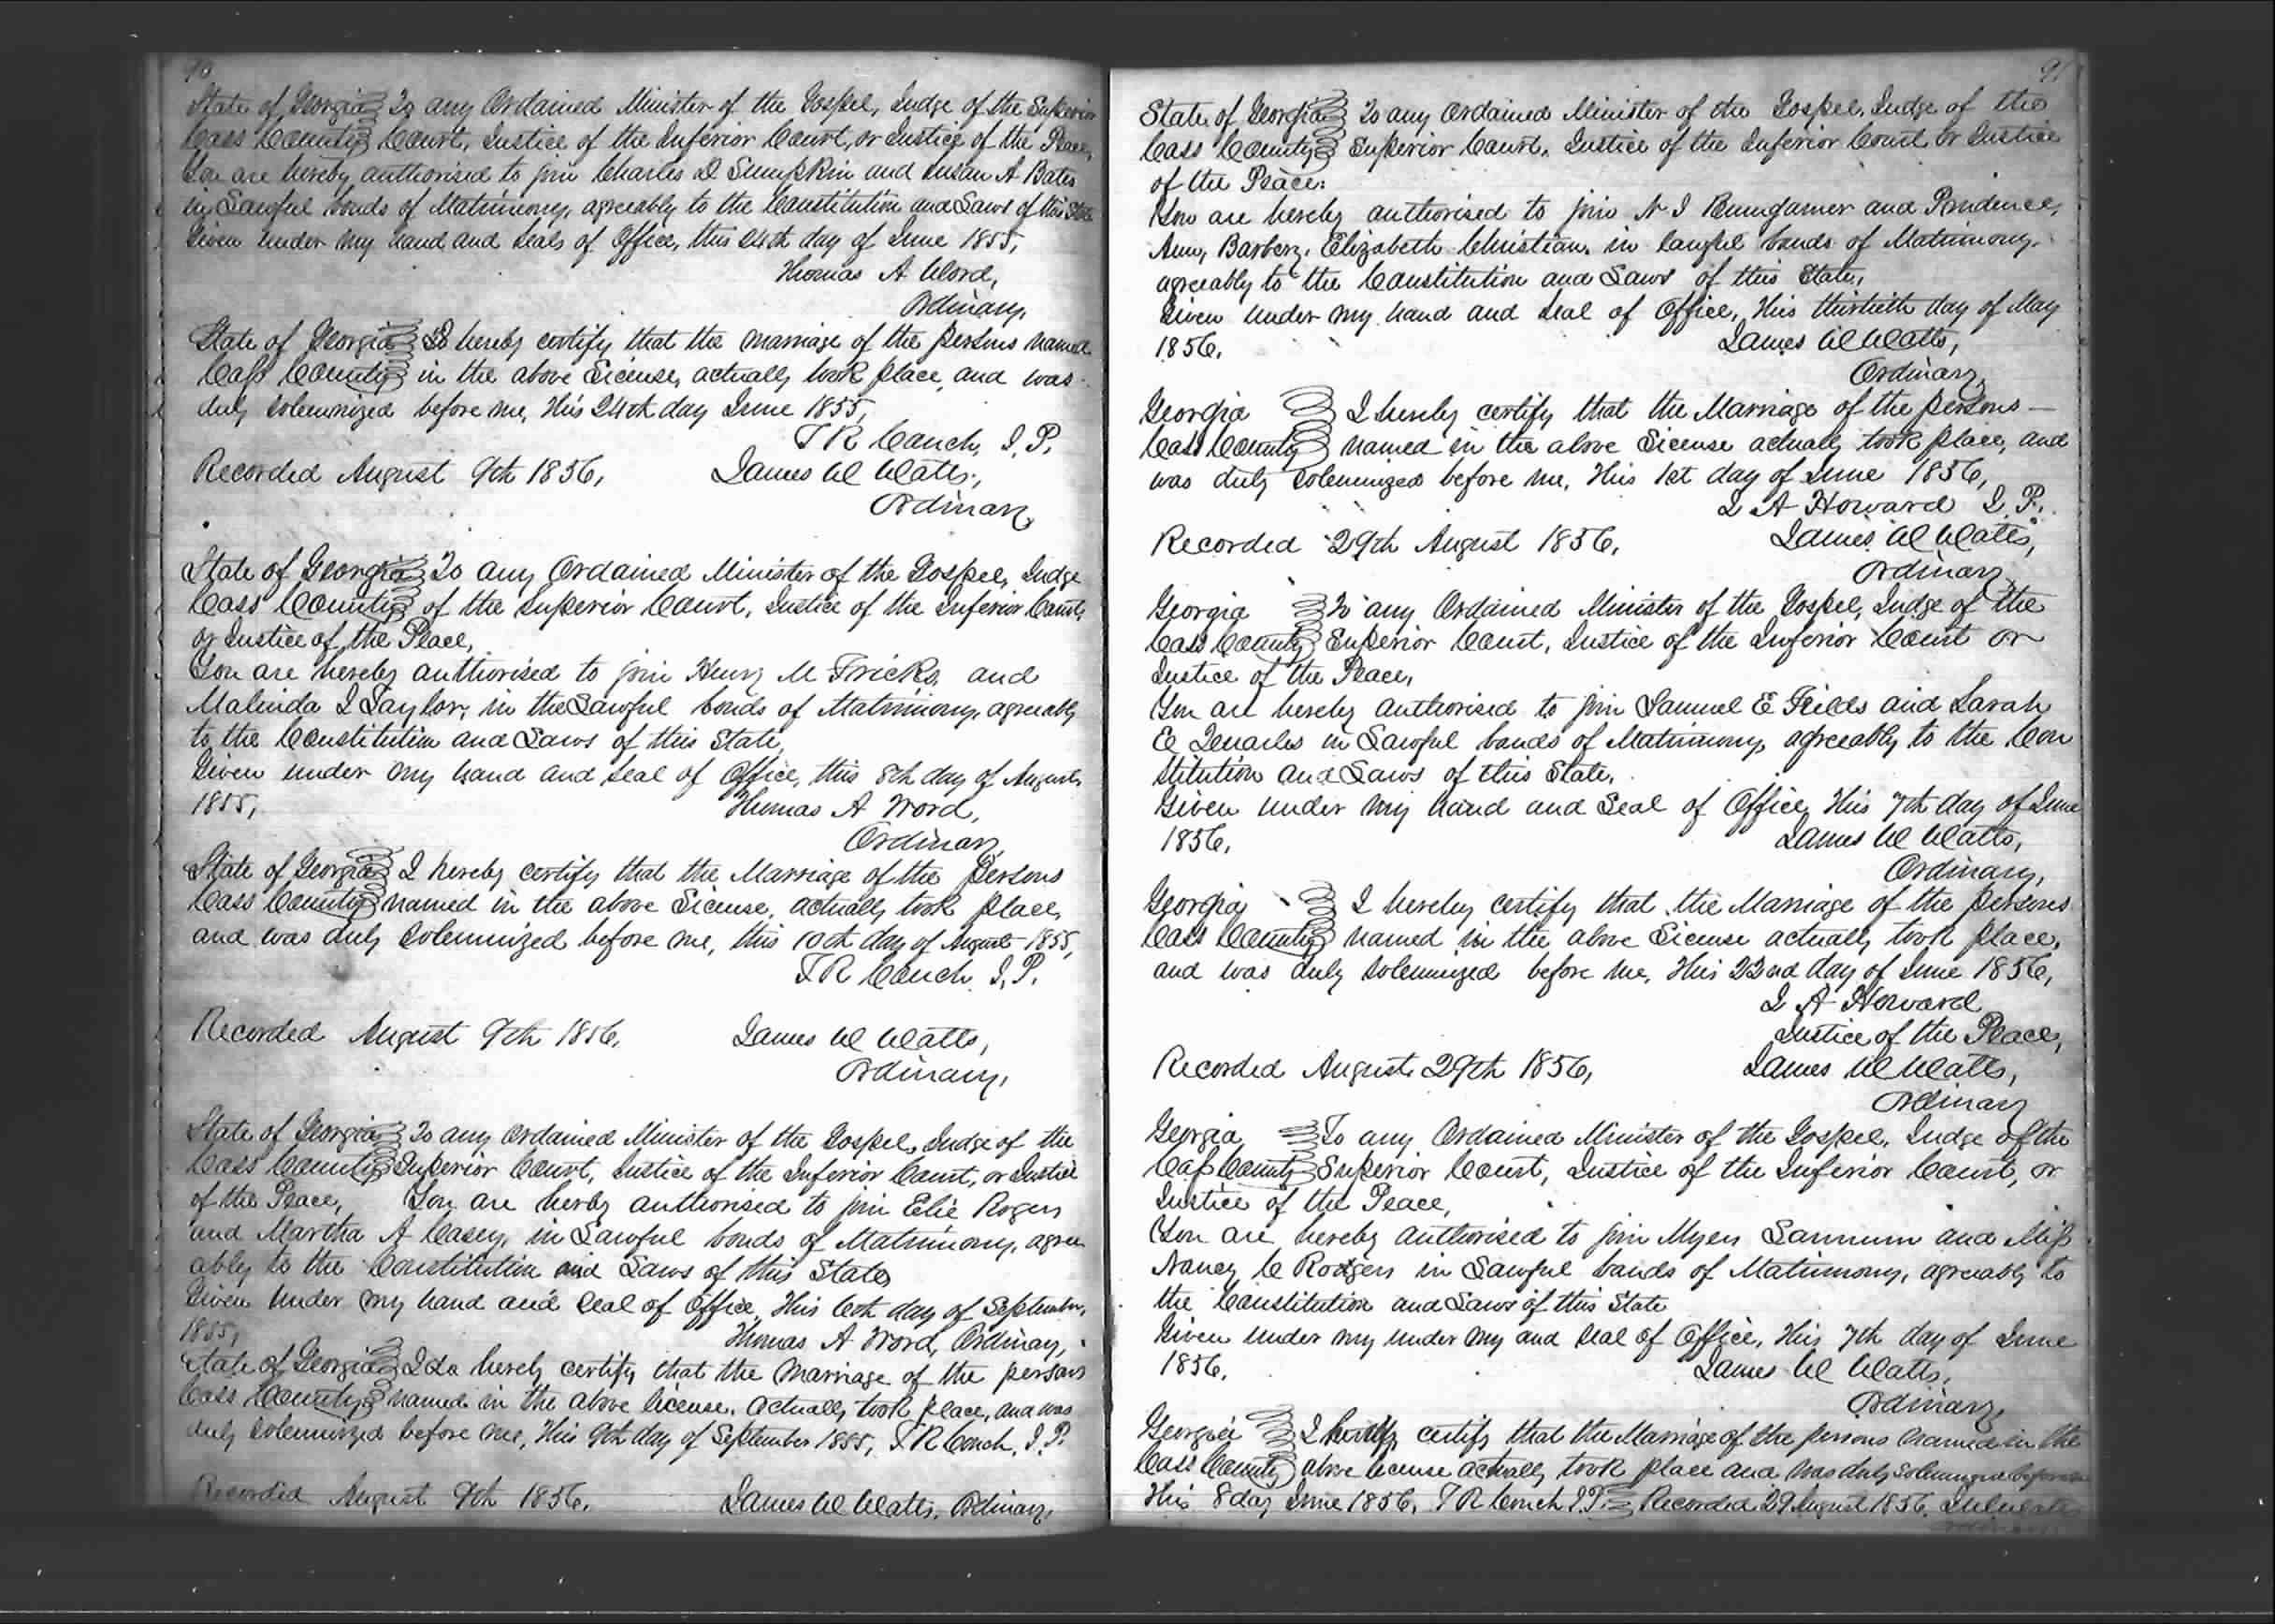 90
State of Georgia To any Ordained Minister of the Gospel, Judge of the Superior
Cass County Court, Justice of the Inferior Court, or Justice of the Peace,
You are hereby authorised to join Charles D Lumpkin and Susan A Bates
in Lawful bonds of Matrimony, agreeably to the Constitution and Laws of this State
Given under my hand and seals of Office, this 24th day of June 1855,
Thomas A Word,
Ordinary,
State of Georgia I hereby certify that the marriage of the persons named
Cass County in the above License, actually took place, and was
duly solemnized before me, this 24th day June 1855,
T R Couch, J. P.
Recorded August 9th 1856, James W Watts,
Ordinary
State of Georgia To any Ordained Minister of the Gospel, Judge
Cass County of the Superior Court, Justice of the Inferior Court,
or Justice of the Peace,
You are hereby authorised to join Henry M Fricks, and
Malinda J Taylor, in the Lawful bonds of Matrimony, agreeably
to the Constitution and Laws of this State,
Given under my hand and seal of Office, this 8th day of August
1855, Thomas A Word,
Ordinary,
State of Georgia I hereby certify that the Marriage of the persons
Cass County named in the above License, actually took place,
and was duly solemnized before me, this 10th day of August 1855,
T R Couch J. P.
Recorded August 9th 1856, James W Watts,
Ordinary,
State of Georgia To any Ordained Minister of the Gospel, Judge of the
Cass County Superior Court, Justice of the Inferior Court, or Justice
of the Peace, You are herby authorised to join Elie Rogers
and Martha A Casey, in Lawful bonds of Matrimony, agree
ably to the Constitution and Laws of this State
Given under my hand and seal of Office, this 6th day of September,
1855, Thomas A Word, Ordinary,
State of Georgia I do herely certify that the marriage of the persons
Cass County named in the above license, actually took place, and was
duly solemnized before me, this 9th day of September 1855, T R Couch, J. P.
Recorded August 9th 1856, James W Watts, Ordinary,
91
State of Georgia To any Ordained Minister of the Gospel, Judge of the
Cass County Superior Court, Justice of the Inferior Court or Justice
of the Peace.
You are hereby authorised to join N J Bumgarner and Prudence,
Ann, Barbery, Elizabeth Christian, in lawful bonds of Matrimony,
agreeably to the Constitution and Laws of this State,
Given under my hand and seal of Office, this thirtieth day of May
1856. James W Watts,
Ordinary,
Georgia I hereby certify that the Marriage of the persons —
Cass County named in the above License actually took place, and
was duly solemnized before me, this 1st day of June 1856,
L A Howard J. P.
Recorded 29th August 1856, James W Watts,
Ordinary
Georgia To any Ordained Minister of the Gospel, Judge of the
Cass County Superior Court, Justice of the Inferior Court or
Justice of the Peace,
You are hereby authorised to join Samuel E Fields and Sarah
E Quarles in Lawful bonds of Matrimony, agreeably to the Con
stitution and Laws of this State,
Given under my hand and Seal of Office, this 7th day of June
1856, James W Watts,
Ordinary,
Georgia I hereby certify that the Marriage of the persons
Cass County named in the above License actually took place,
and was duly solemnized before me, this 22nd day of June 1856,
L A Howard
Justice of the Peace,
Recorded August 29th 1856, James W Watts,
Ordinary
Georgia To any Ordained Minister of the Gospel, Judge of the
Cass County Superior Court, Justice of the Inferior Court, or
Justice of the Peace,
You are hereby authorised to join Myers Lannum and Miss
Nancy C Rodgers in Lawful bonds of Matrimony, agreeably to
the Constitution and Laws of this State
Given under my under my and seal of Office, this 7th day of June
1856, James W Watts,
Ordinary,
Georgia I hereby certify that the Marriage of the persons named in the
Cass County above license actually took place and was duly solemnized before me
this 8 day June 1856, T R Couch J. P. Recorded 29 August 1856.